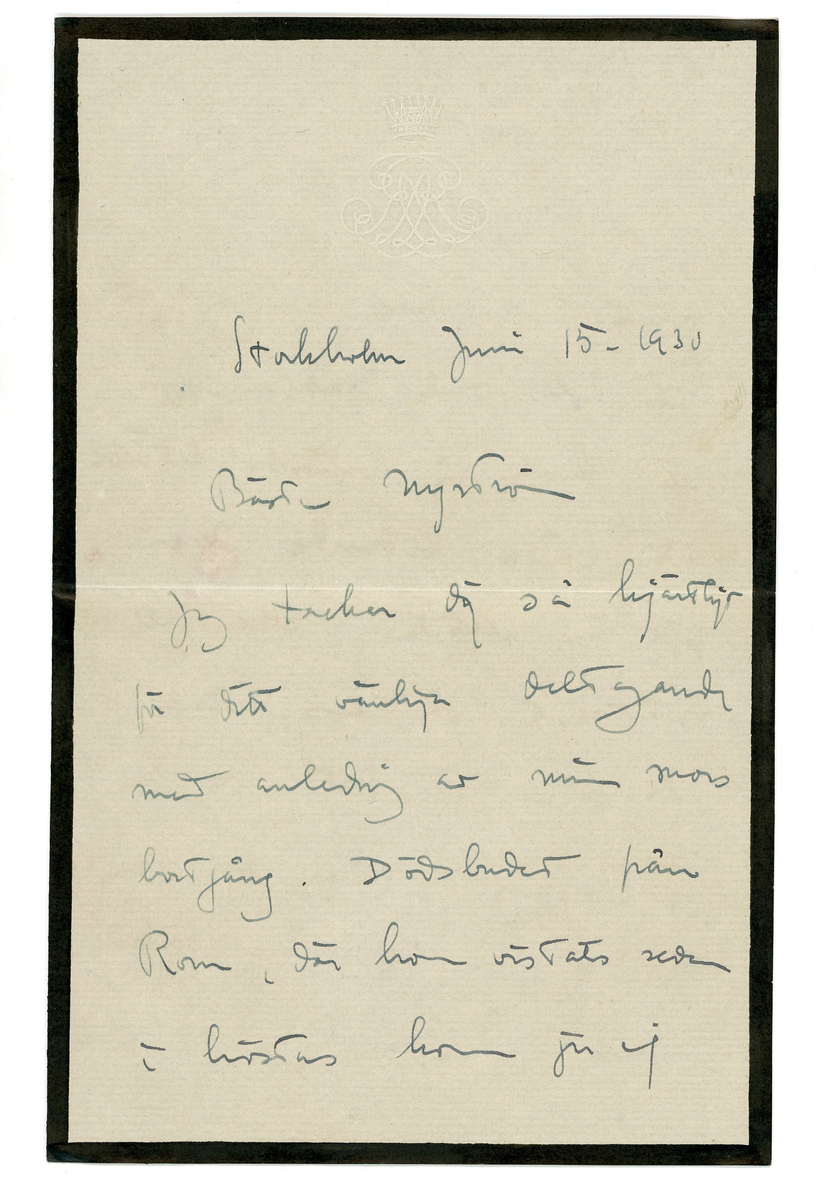 Stockholm Juni 15 - 1930
Bäste Nyström
Jag tackar dig så hjärtligt
för ditt vänliga deltagande
med anledning av min mors
bortgång. Dödsbudet från
Rom, där hon vistats sedan
i höstas kom ju ej